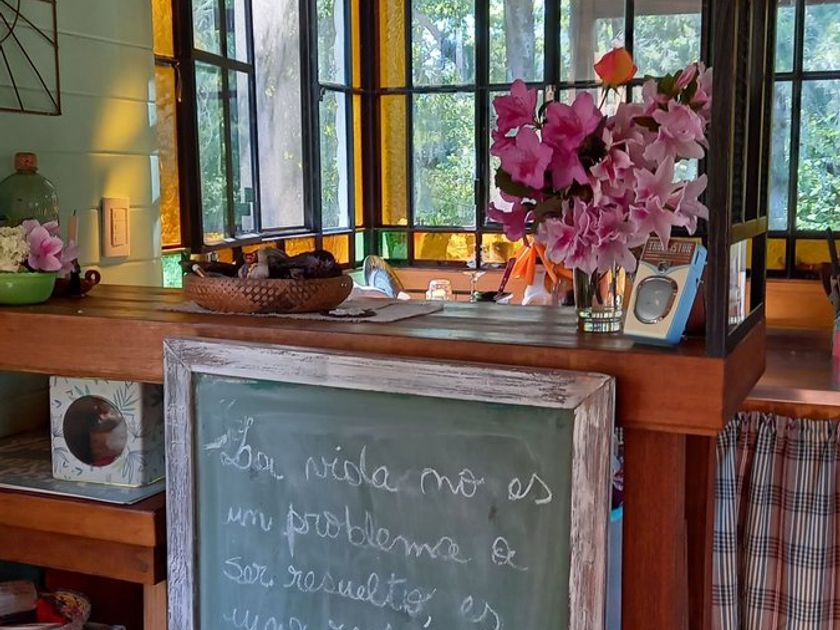 TRANSISTOR
"La vida no es
un problema a
ser resuelto es
una